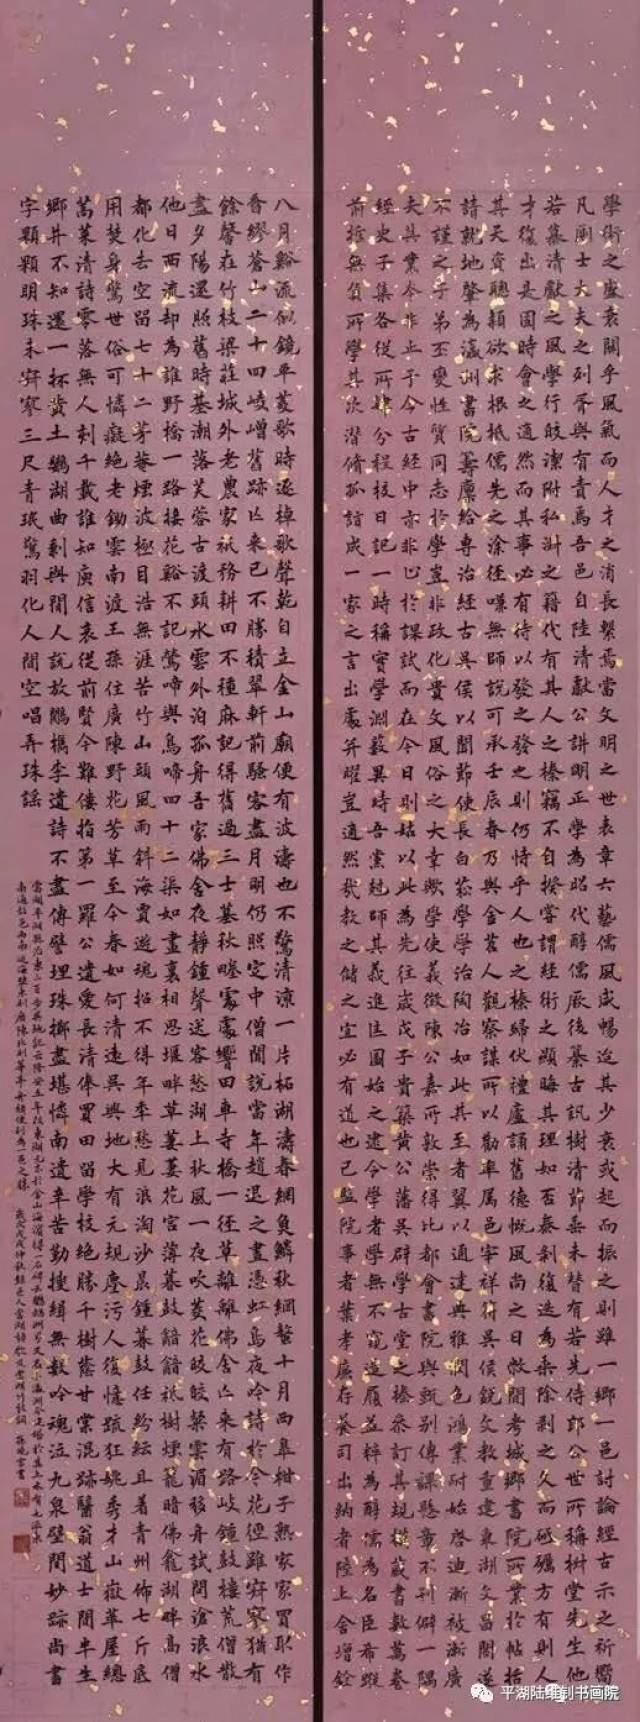 學術之盛衰關乎風氣而人才之消長繫焉當文明之世表章六藝儒風盛暢迨其少衰或起而振之則雖一鄉一邑討論經古示之祈嚮
凡閭士大夫之列胥與有責焉吾邑自陸清獻公講明正學為昭代醇儒厥後纂古訊樹清節未替有若先侍郎公世所稱樹堂先生他
若慕清獻之風學行皎潔附私淑之籍代有其人之榛竊不自揆嘗謂經術之顯晦其理如否泰剝復迭為乘除剝之久而砥礪方有則人
才復出是固時會之適然而其事必有待以發之發之則仍恃乎人也之榛歸伏禮廬誦舊德慨風尚之日敝間考城鄉書院所業於帖括
其天資聰穎欲求根柢儒先之涂徑嗛無師說可承壬辰春乃與金苕人觀察謀所以勸率属邑宰祥符吳侯銳文教重建東湖文昌閣遂
請就地肇為瀛洲書院籌廩給專治經古吳侯以聞節使長白崧學學治陶冶如此其至者翼以通達典雅潤色鴻業耐始啓迪漸被漸廣
不謹之子弟丕變性質同志於學豈非政化實文風俗之大幸歟學使義徵陳公嘉所敦崇得比都會書院與甄別傳課懸章不刋僻一隅
夫其業今非止于今古經中亦非於課試而在今日則姑以此為先往歲戊子貴築黃公藩吳辟學古堂之榛參訂其規模蔵書數萬卷
經史子集各從所肄分程校日記一時稱實學淵藪異時吾黨尅師其義進匡園始之逮今學者學無不窺道履益粹為醇儒為名臣希蹤
前哲無負所學其次潜脩孤詣成一家之言出處并曜豈適然哉教之儲之宜必有道也已監院事者葉孝廉存養司出納者陸上舍增銓
八月谿流似鏡平菱歌時逐棹歌聲乾自立金山廟便有波濤也不驚清涼一片柘湖濤春網負鱗秋網螯十月兩皋柑子熟家家買取作
香繆蒼山二十四崚嶒舊跡亾来已不勝積翠軒前騷客盡月明仍照定中僧聞說當年趙退之畫憑虹烏夜吟詩於今花徑雖寂寥猶有
餘馨在竹枝梁莊城外老農家祇務耕田不種麻記得舊過三士墓秋塍處處響田車寺橋一徑草離離佛舍亾来有路岐鐘鼓樓荒僧散
盡夕陽還照舊時基潮落芙蓉古渡頭水雲外泊孤舟吾家佛舍夜靜鍾聲送客愁湖上秋風一夜吹菱花皎皎蓼雲湄移舟試問滄浪水
他日西流却為誰野橋一路接花谿不記鶯啼與鳥啼四十二渠如畫裏相思堰畔草萋萋花宮薄暮鼓韽韽秪樹煙籠暗佛龕湖畔高僧
都化去空留七十二茅菴煙波極目浩無涯苦竹山頭風雨斜海賈遊魂招不得年季愁見浪淘沙晨鍾暮鼓任紛紜且着青州佈七斤底
用焚身驚世俗可憐癡絕老鋤雲南渡王孫住廣陳野花芳草至今春如何清遠吳興地大有元規塵污人復憶疏狂姚秀才山嶽華屋總
蒿萊清詩零落無人刻千載誰知庾信哀從前賢令難僂指第一羅公遺愛長清俸買田留學校絕勝千樹蔭甘棠混跡醫翁道士間半生
鄉井不知還一抔黃土鸚湖曲剩與閒人說放鵰檇李遺詩不盡傳譬埋珠擲盡堪憐南遺辛苦勤搜緝無數吟魂泣九泉壁間妙跡尚書
字顆顆明珠未寂寥三尺青珉驚羽化人間空唱弄珠謠
平湖陆维钊书画院